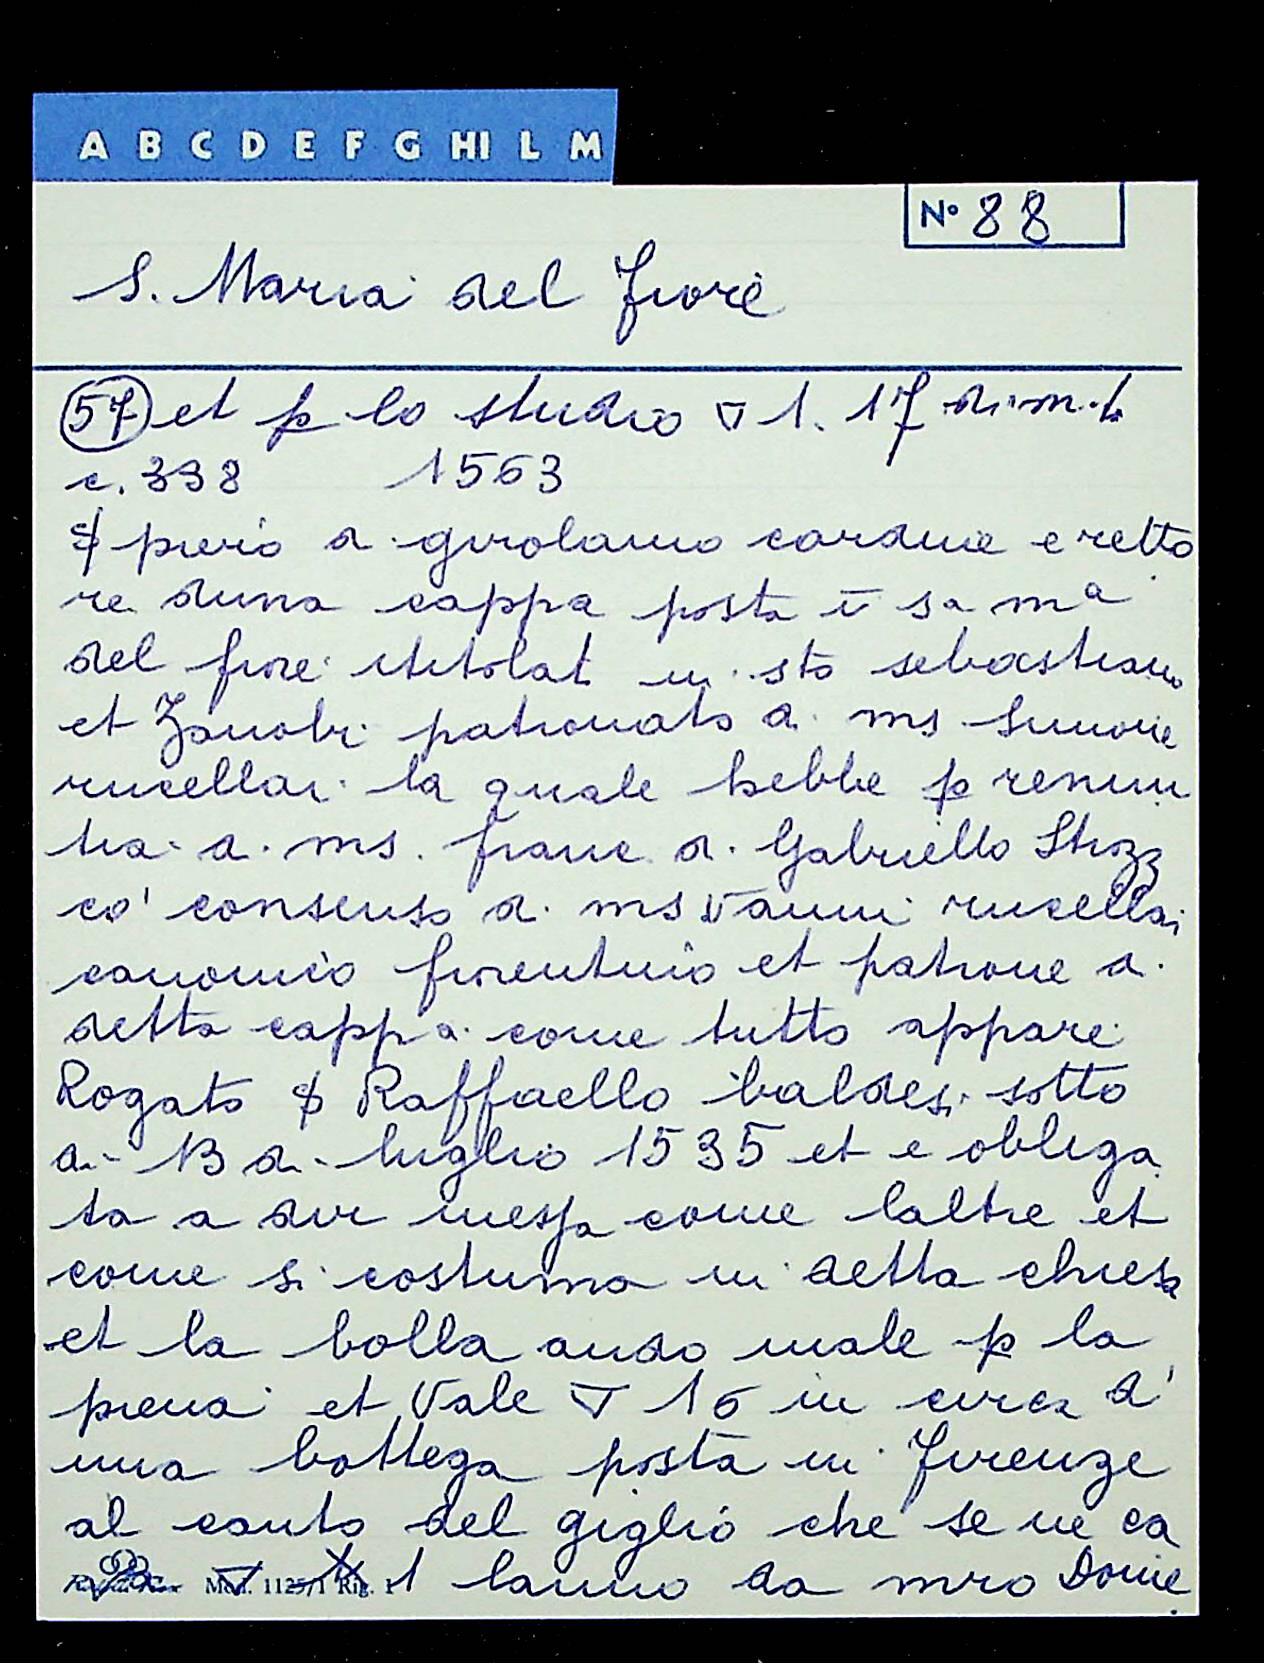 A B C D E F G HI L M
N° 88
S. Maria del Fiore
57 et p lo studio ▽ 1. 17 di m.ta
c. 338 1563
$ piero d. girolamo cardine e retto
re duna cappa posta ī sa ma
del fiore ititolat in sto sebastiano
et Zanobi patronato d. ms Simone
rucellai la quale hebbe p renun
tia d. ms. franc d. Gabriello Strozz
co' consenso d. ms Vanni rucellai
canonico fiorentino et patrone d.
detta cappa come tutto appare
Rogato $ Raffaello baldesi sotto
di 13 di luglio 1535 et e obliga
ta a dir messa come laltre et
come si costuma in detta chiesa
et la bolla ando male p la
piena et Vale ▽ 16 in circa d'
una bottega posta in Firenze
al canto del giglio che se ne ca
Mod. 1125/1 Rig. 1 lanno da mro Dome